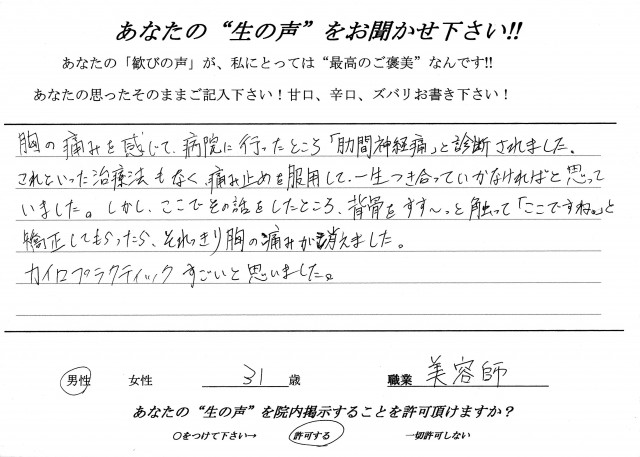 あなたの“生の声”をお聞かせ下さい!!
あなたの「歓びの声」が、私にとっては“最高のご褒美”なんです!!
あなたの思ったそのままご記入下さい！甘口、辛口、ズバリお書き下さい！
胸の痛みを感じて、病院に行ったところ「肋間神経痛」と診断されました。
これといった治療法もなく、痛み止めを服用して、一生つき合っていかなければと思って
いました。しかし、ここでその話をしたところ、背骨をすす〜っと触って「ここですね。」と
矯正してもらったら、それっきり胸の痛みが消えました。
カイロプラクティックすごいと思いました。
男性 女性 31 歳 職業 美容師
あなたの“生の声”を院内掲示することを許可頂けますか？
○をつけて下さい→ 許可する 一切許可しない